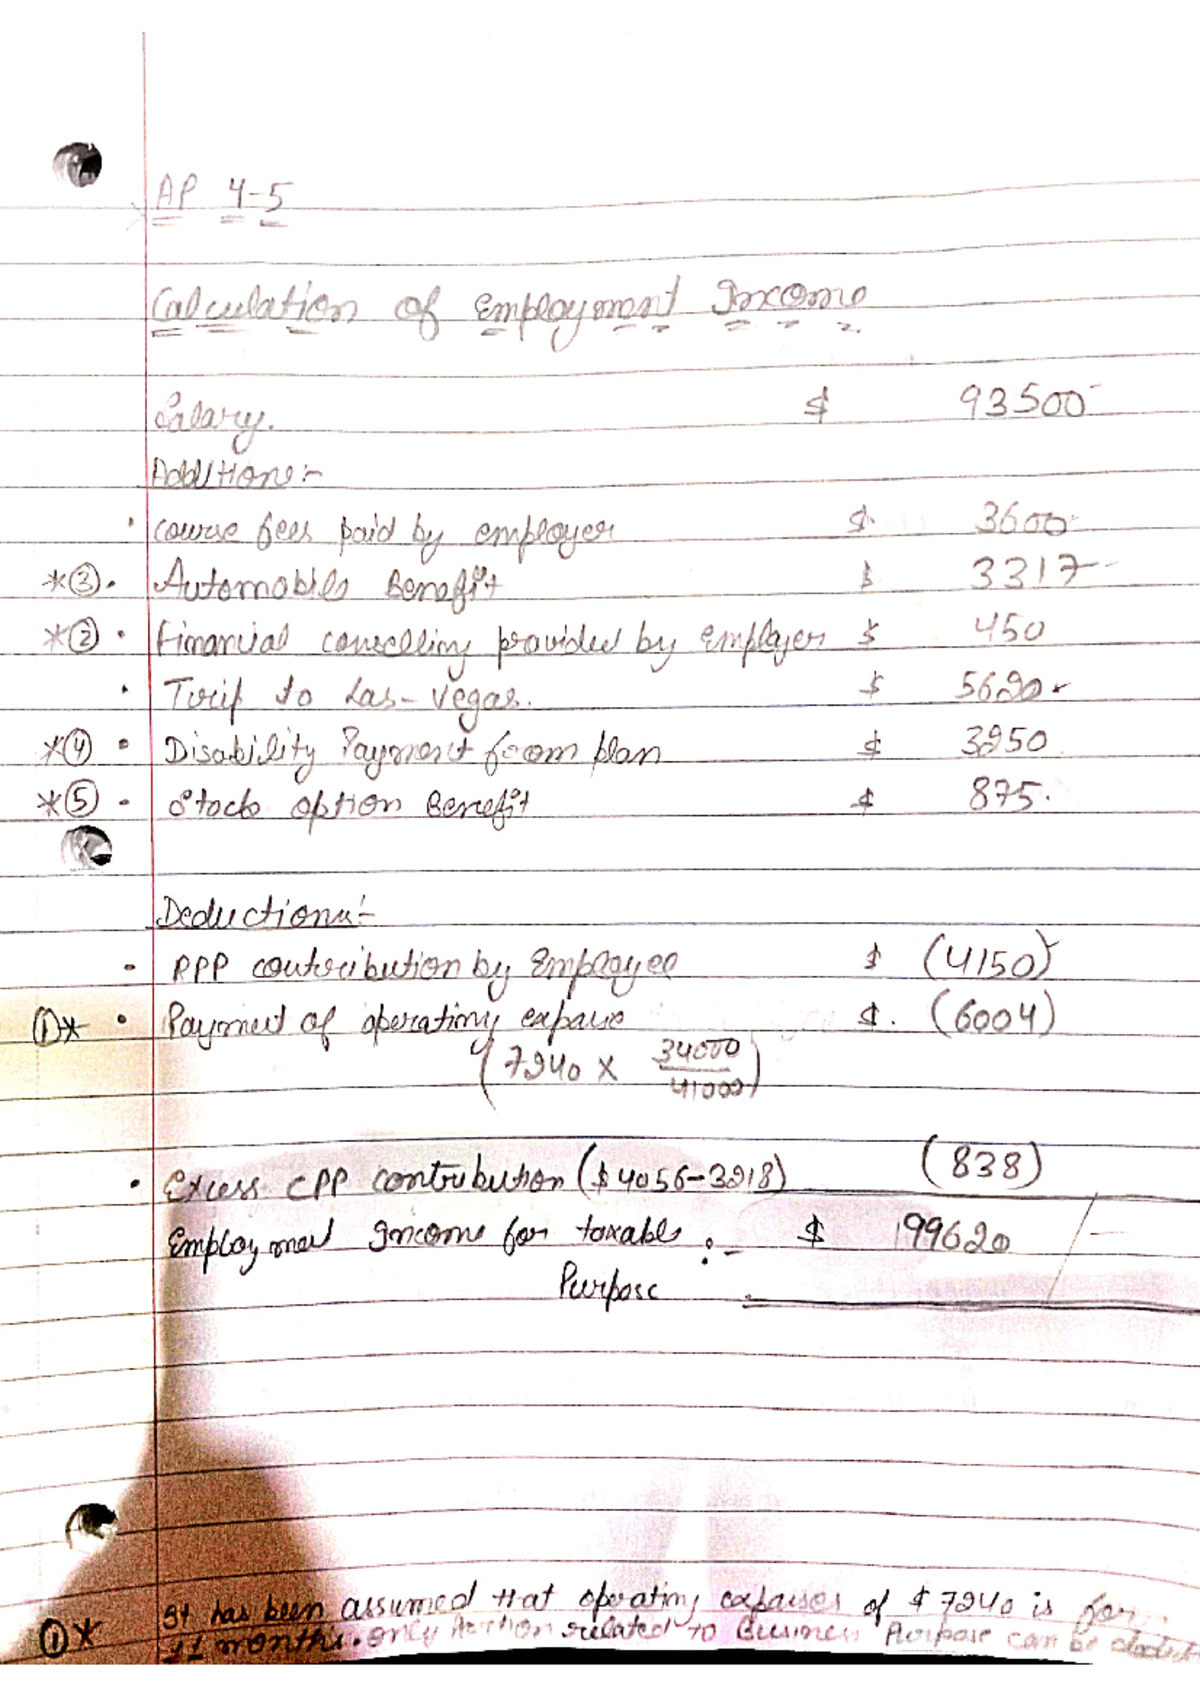 AP 4-5
Calculation of Employment Income
Salary. $ 93500
Additions:-
• course fees paid by employer $ 3600
*③• Automobile Benefit $ 3317
*② • Financial provided by Employer $ 450
• Trip to Las-Vegas. $ 5620
*④ • Disability Payment from plan $ 3250
*⑤ • Stock option Benefit $ 875
Deductions:-
• RPP contribution by Employee $ (4150)
①* • Payment of operating $. (6004)
(7240 × 34000
41000)
• Excess CPP contribution ($4056-3218) (838)
Employment Income for taxable :- $ 99620
Purpose
①* It has been assumed that operating expenses of $7240 is for
11 months. only portion related to Business Purpose can be